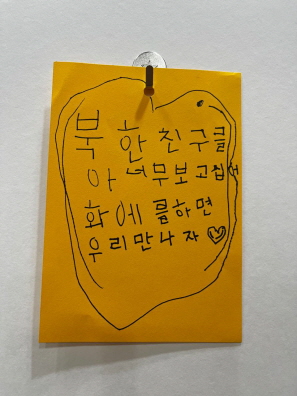 북한친구들
아너무보고십어
화에를하면
우리만나자♡